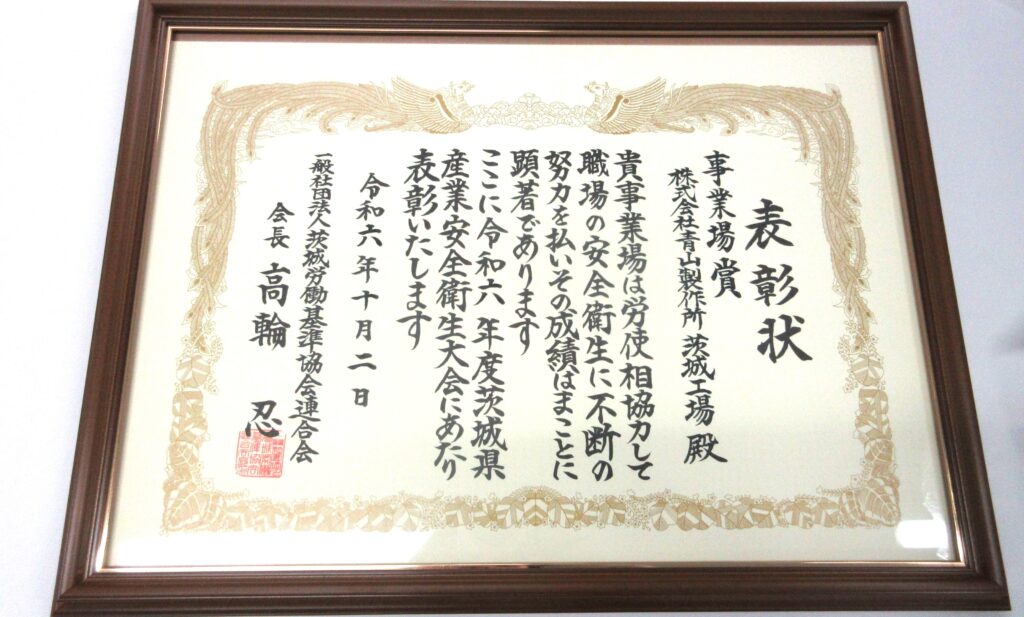 表彰状
事業場賞
株式会社青山製作所 茨城工場 殿
貴事業場は労使相協力して
職場の安全衛生に不断の
努力を払いその成績はまことに
顕著であります
ここに令和六年度茨城県
産業安全衛生大会にあたり
表彰いたします
令和六年十月二日
一般社団法人茨城労働基準協会連合会
会長 高輪 忍